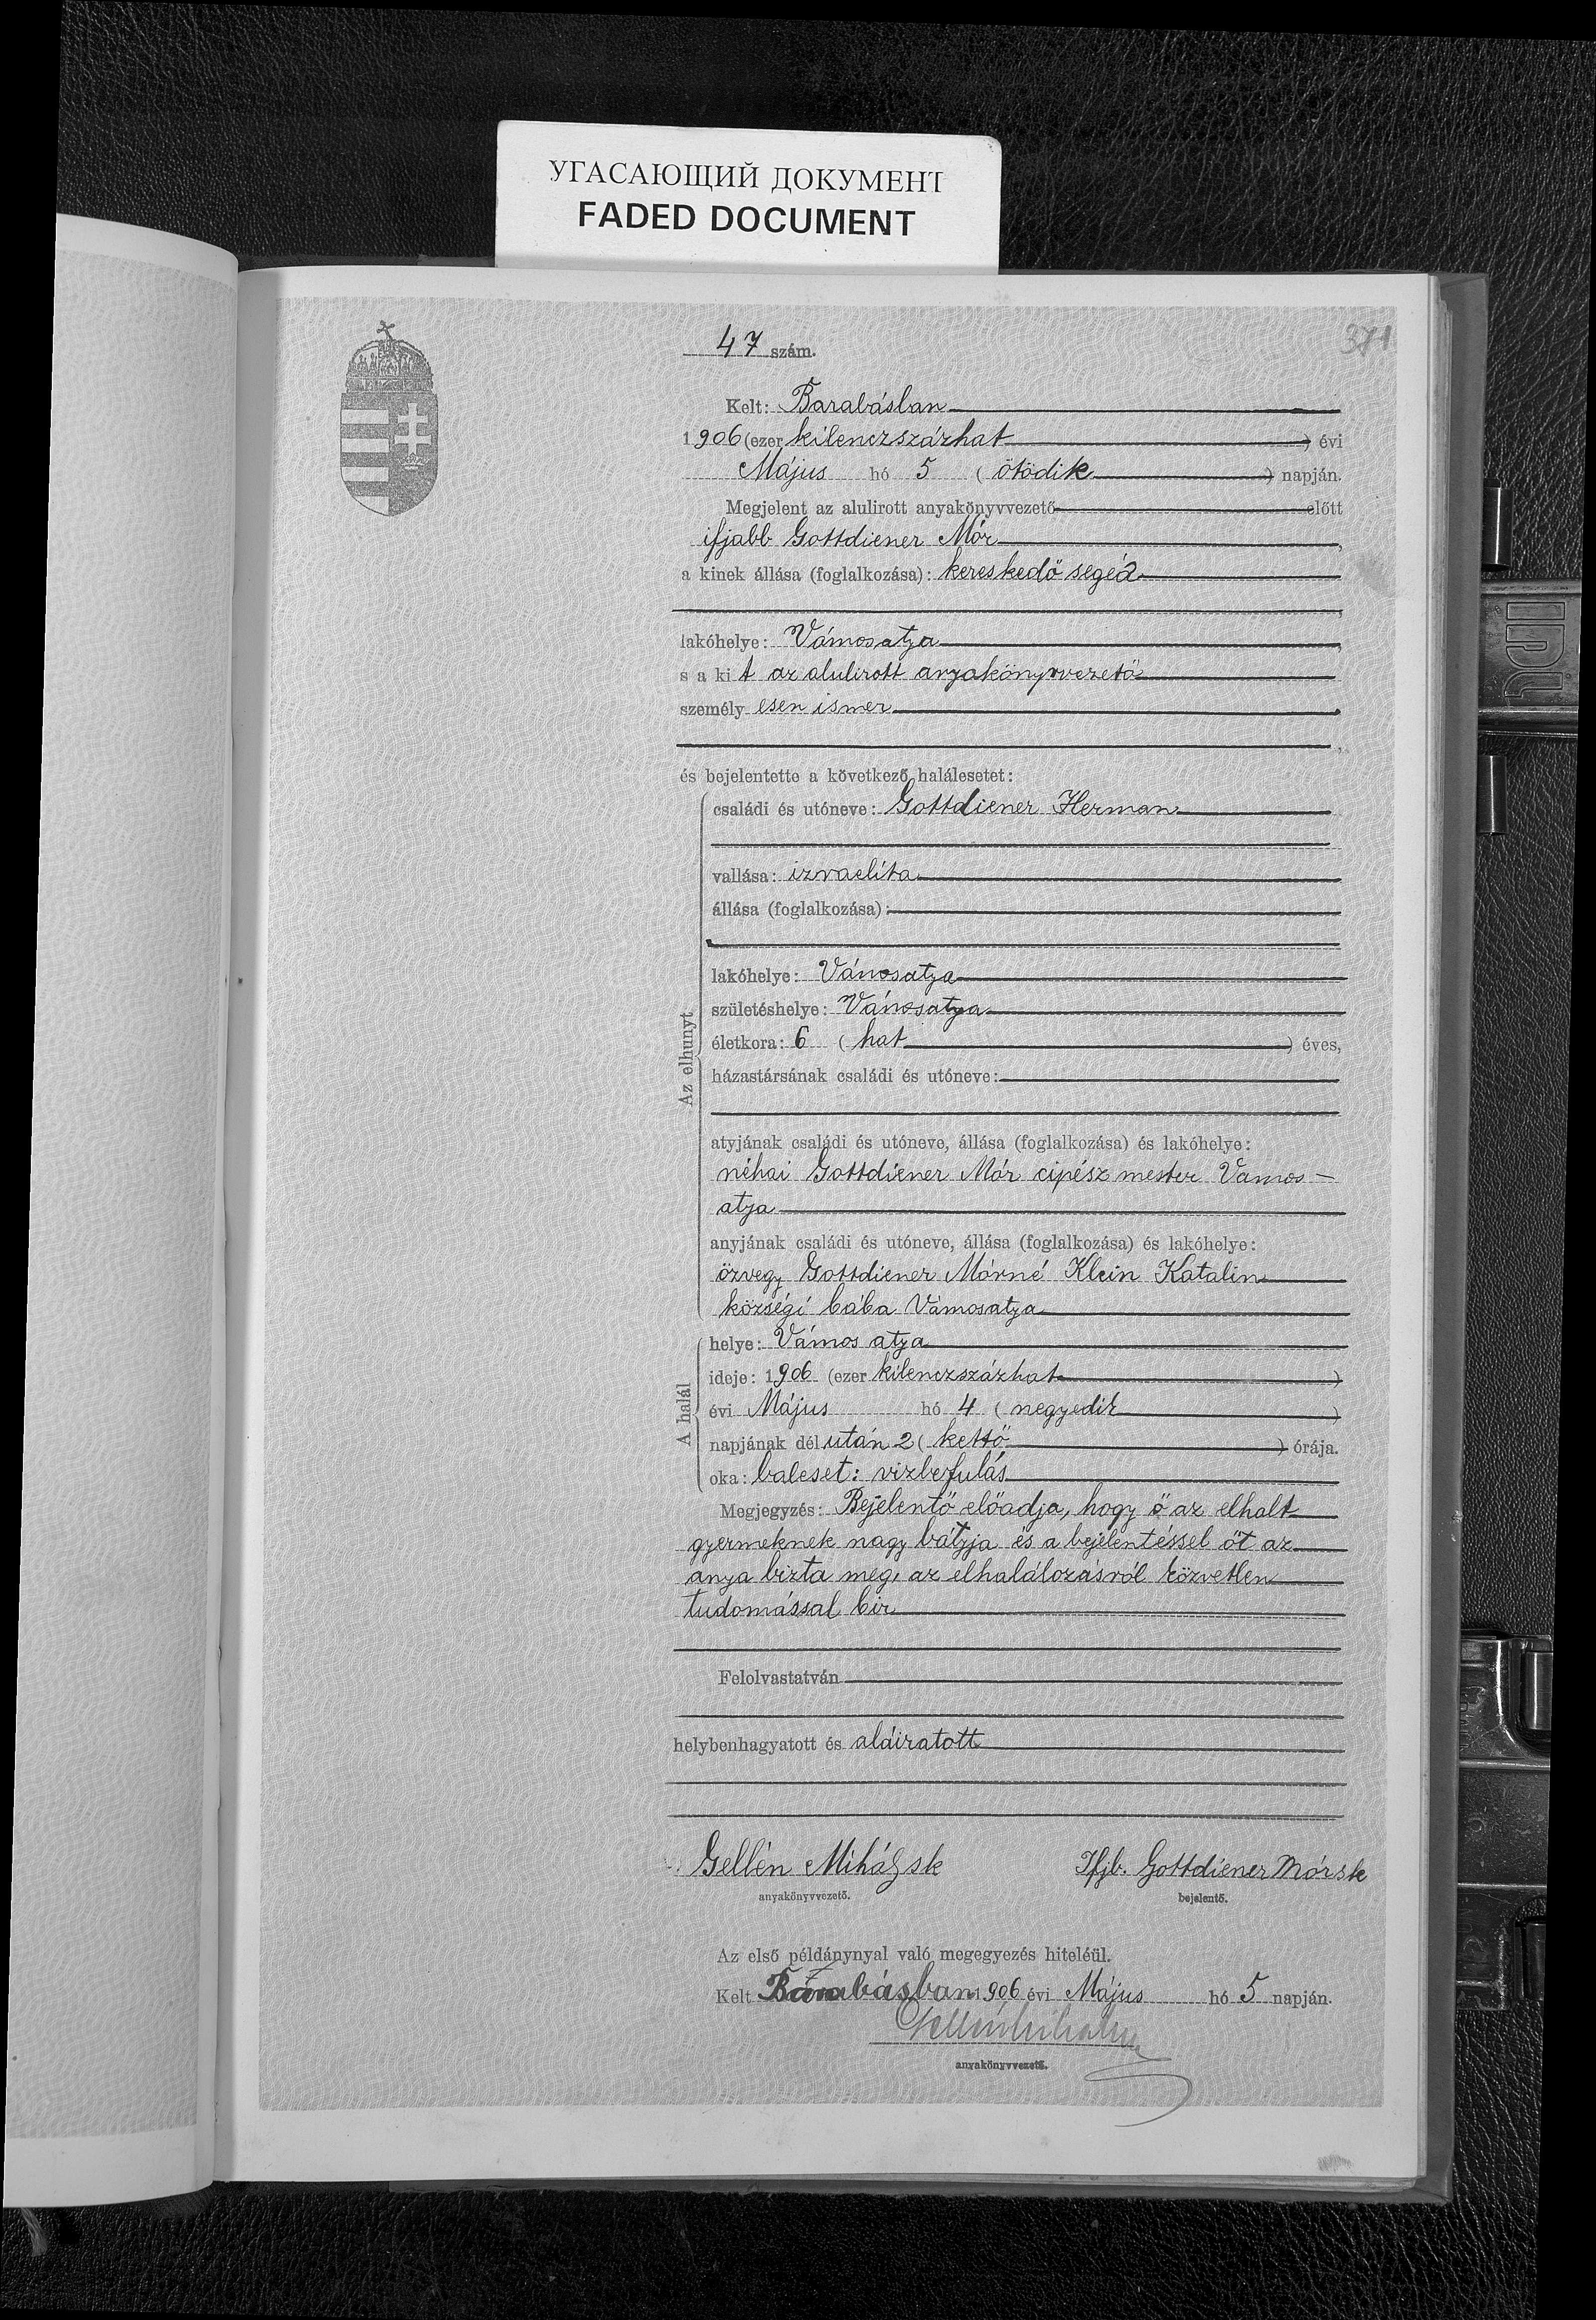 УГАСАЮЩИЙ ДОКУМЕНТ
FADED DOCUMENT
371
47 szám.
Kelt: Barabásban
1906 (ezer kilenczszázhat) évi
Május hó 5 (ötödik) napján.
Megjelent az alulirott anyakönyvvezető előtt
ifjabb Gottdiener Mór,
a kinek állása (foglalkozása): kereskedő segéd
lakóhelye: Vámosatya,
s a kit az alulirott anyakönyvvezető
személyesen ismer,
és bejelentette a következő halálesetet:
Az elhunyt
családi és utóneve: Gottdiener Herman
vallása: izraelita
állása (foglalkozása):
lakóhelye: Vámosatya
születéshelye: Vámosatya
életkora: 6 (hat) éves,
házastársának családi és utóneve:
atyjának családi és utóneve, állása (foglalkozása) és lakóhelye:
néhai Gottdiener Mór cipész mester Vamos-
atya
anyjának családi és utóneve, állása (foglalkozása) és lakóhelye:
özvegy Gottdiener Mórné Klein Katalin
községi bába Vámosatya
A halál
helye: Vámos atya
ideje: 1906 (ezer kilenczszázhat)
évi Május hó 4 (negyedik)
napjának délután 2 (kettő) órája.
oka: baleset: vizbefulás
Megjegyzés: Bejelentő előadja, hogy ő az elhalt
gyermeknek nagy bátyja és a bejelentéssel őt az
anya bizta meg, az elhalálozásról közvetlen
tudomással bir
Felolvastatván
helybenhagyatott és aláiratott
Gellén Mihály sk Ifjb. Gottdiener Mór sk
anyakönyvvezető. bejelentő.
Az első példánynyal való megegyezés hiteléül.
Kelt Barabásban 1906 évi Május hó 5 napján.
Gellén Mihály
anyakönyvvezető.